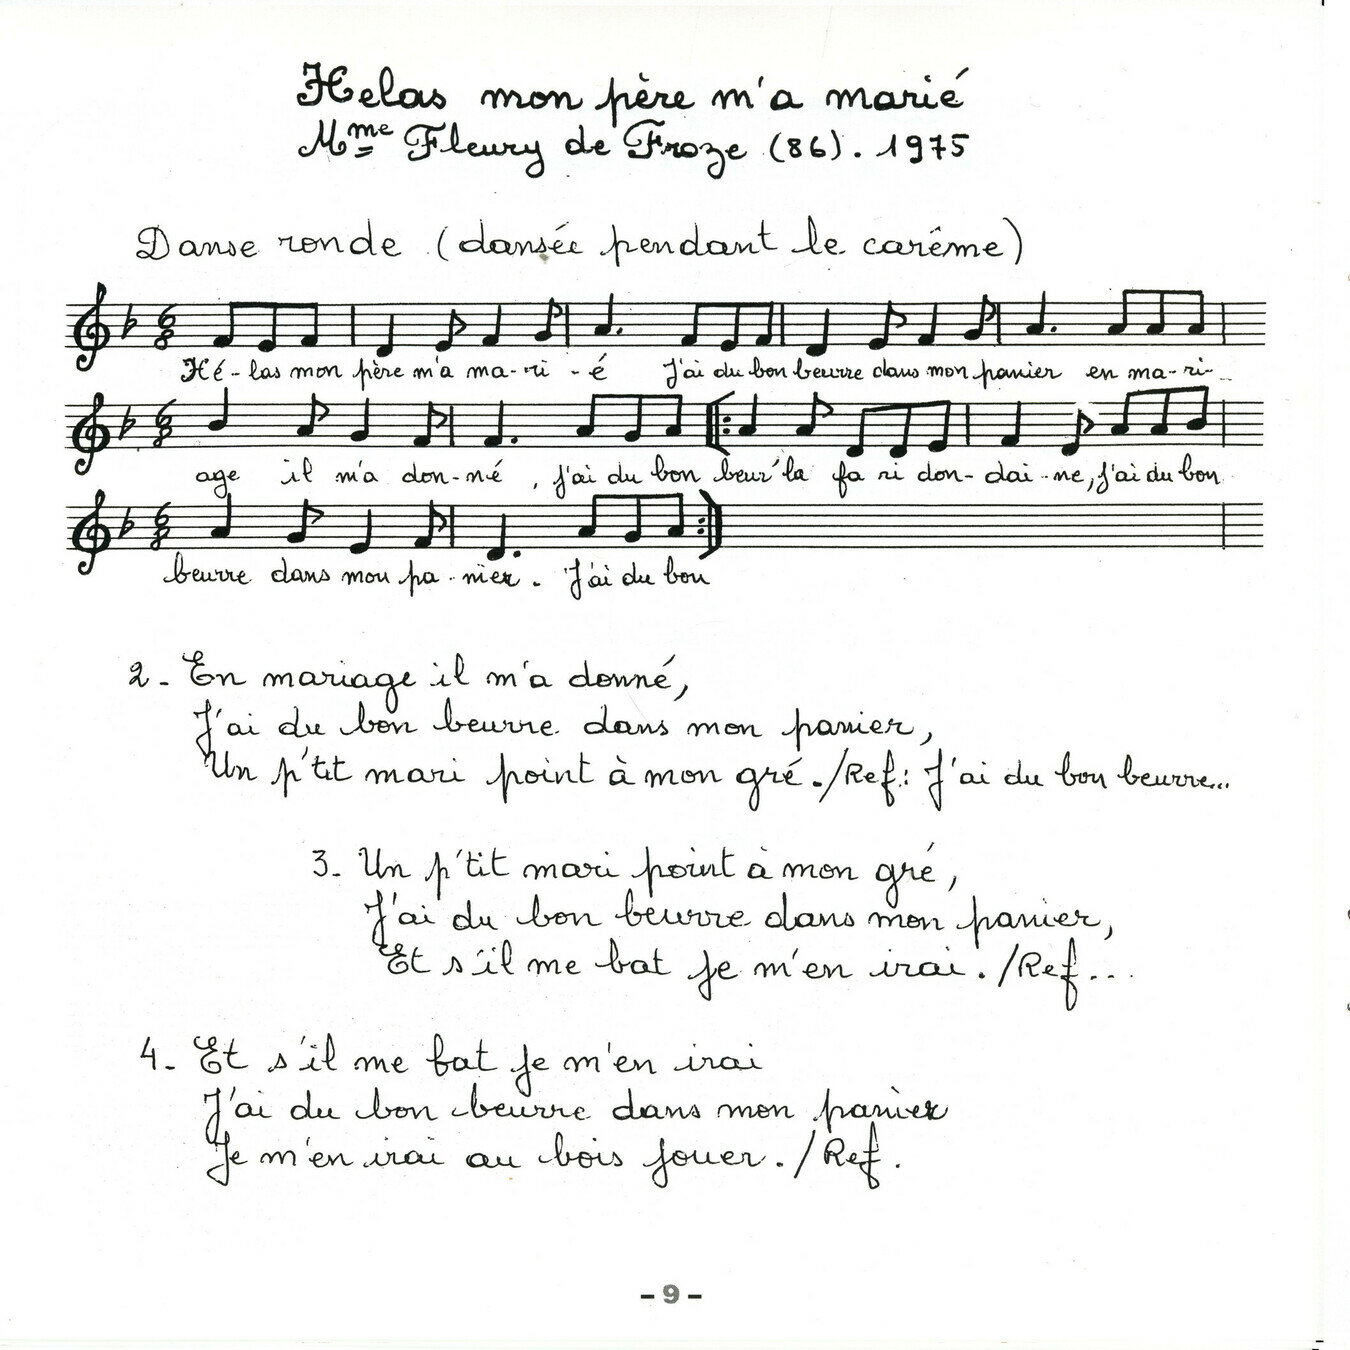 Helas mon père m'a marié
Mme Fleury de Froze (86). 1975
Danse ronde (dansée pendant le carême)
Hé-las mon père m'a ma-ri-é J'ai du bon beurre dans mon panier en ma-ri-
age il m'a don-né, j'ai du bon beur' la fa ri don-dai-ne, j'ai du bon
beurre dans mon pa-nier. J'ai du bon
2- En mariage il m'a donné,
J'ai du bon beurre dans mon panier,
Un p'tit mari point à mon gré./Ref: J'ai du bon beurre...
3- Un p'tit mari point à mon gré,
J'ai du bon beurre dans mon panier,
Et s'il me bat je m'en irai./Ref...
4- Et s'il me bat je m'en irai
J'ai du bon beurre dans mon panier
Je m'en irai au bois jouer./Ref.
- 9 -